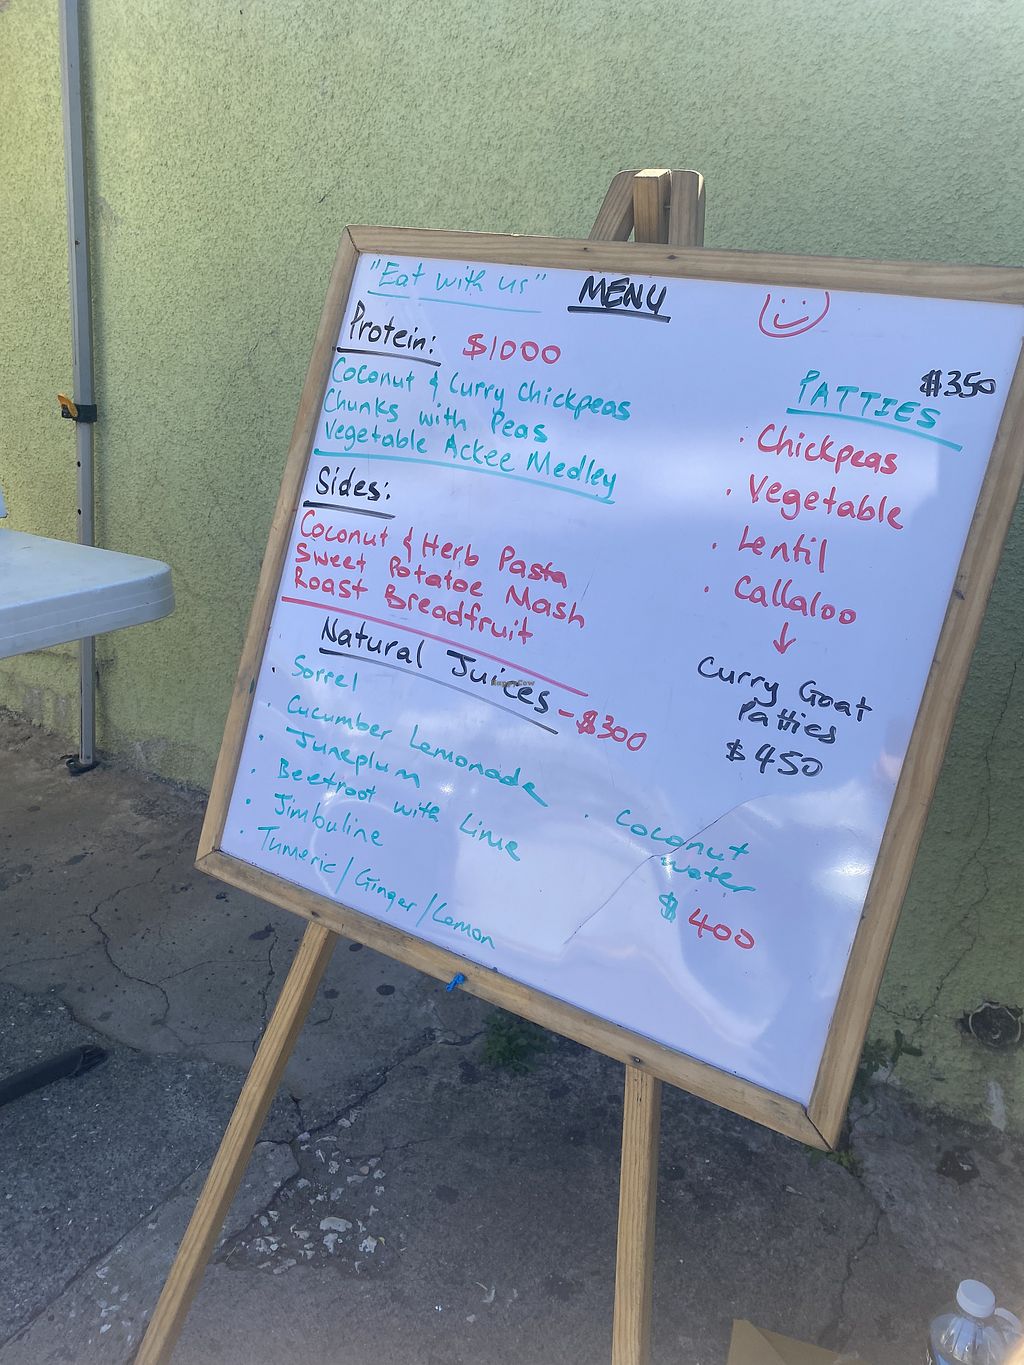 "Eat with us"
MENU
Protein: $1000
Coconut & Curry Chickpeas
Chunks with Peas
Vegetable Ackee Medley
Sides:
Coconut & Herb Pasta
Sweet Potatoe Mash
Roast Breadfruit
Natural Juices - $300
· Sorrel
· Cucumber Lemonade
· Juneplum
· Beetroot with Lime
· Jimbuline
· Tumeric/Ginger/Lemon
PATTIES $350
· Chickpeas
· Vegetable
· Lentil
· Callaloo
↓
Curry Goat
Patties
$450
· Coconut
water
$400
HappyCow